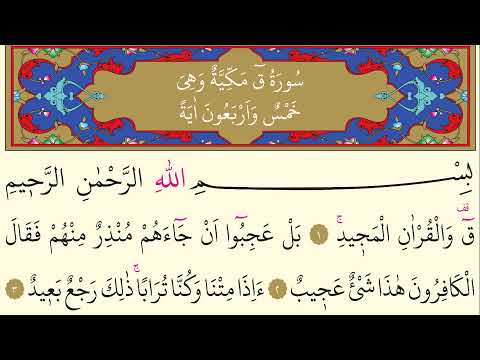 سُورَةُ قٓ مَكِّيَّةٌ وَهِىَ
خَمْسٌ وَاَرْبَعُونَ اٰيَةً
بِسْمِ اللّٰهِ الرَّحْمٰنِ الرَّح۪يمِ
قٓ۠ وَالْقُرْاٰنِ الْمَج۪يدِۚ ﴿١﴾ بَلْ عَجِبُٓوا اَنْ جَٓاءَهُمْ مُنْذِرٌ مِنْهُمْ فَقَالَ
الْكَافِرُونَ هٰذَا شَیْءٌ عَج۪يبٌۚ ﴿٢﴾ ءَاِذَا مِتْنَا وَكُنَّا تُرَابًاۚ ذٰلِكَ رَجْعٌ بَع۪يدٌ ﴿٣﴾